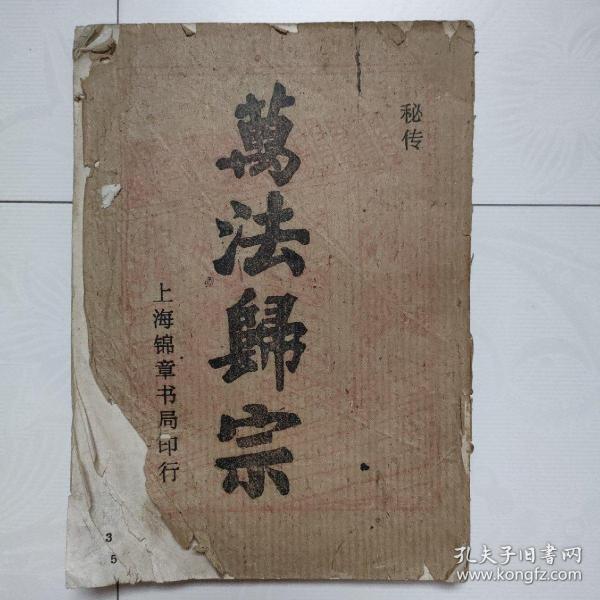 秘传
萬法歸宗
上海锦章书局印行
3
5
孔夫子旧书网
www.kongfz.com